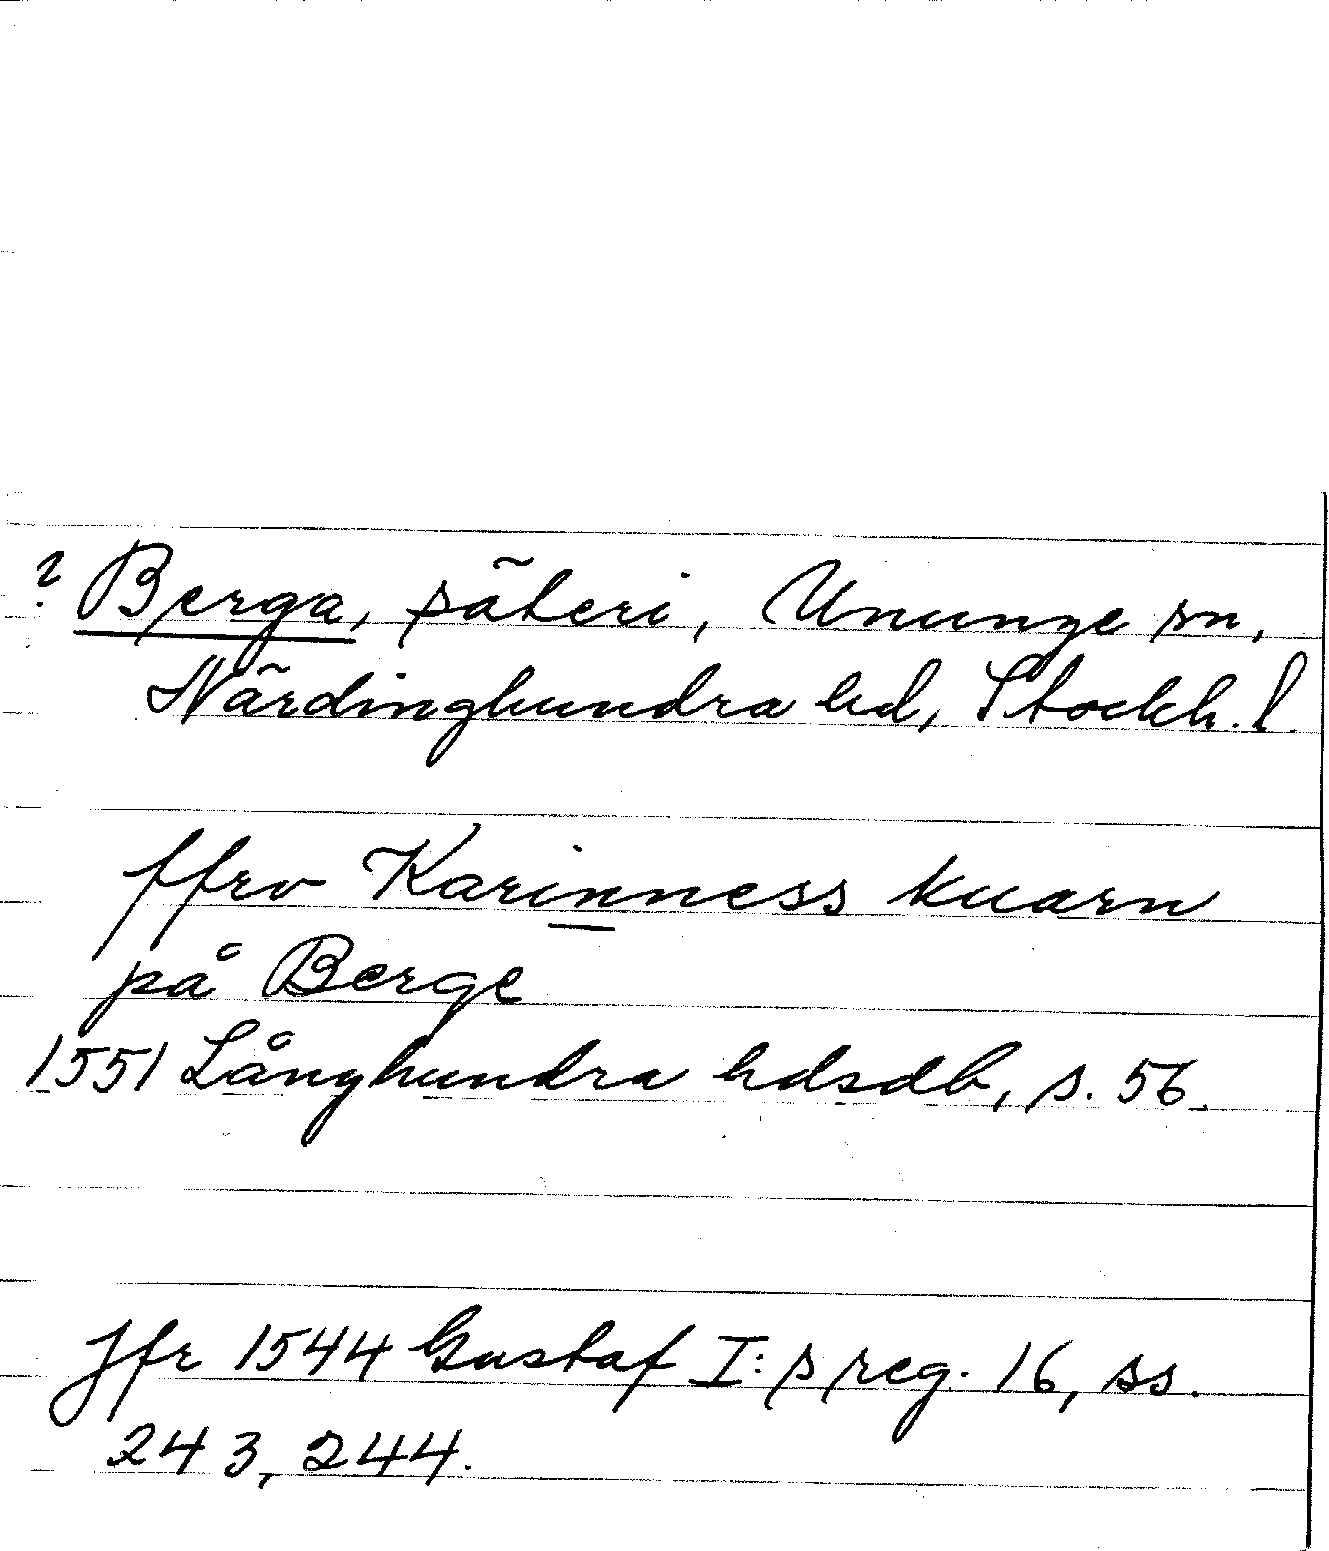 ? Berga, säteri, Ununge sn,
Närdinghundra hd, Stockh. l.
ffrv Karinness kuarn
på Berge
1551 Långhundra hdsdb, s. 56.
Jfr 1544 Gustaf I:s reg. 16, ss.
243, 244.